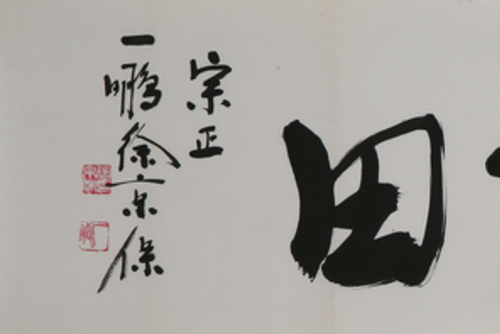 田
宗正
一鵬徐京保